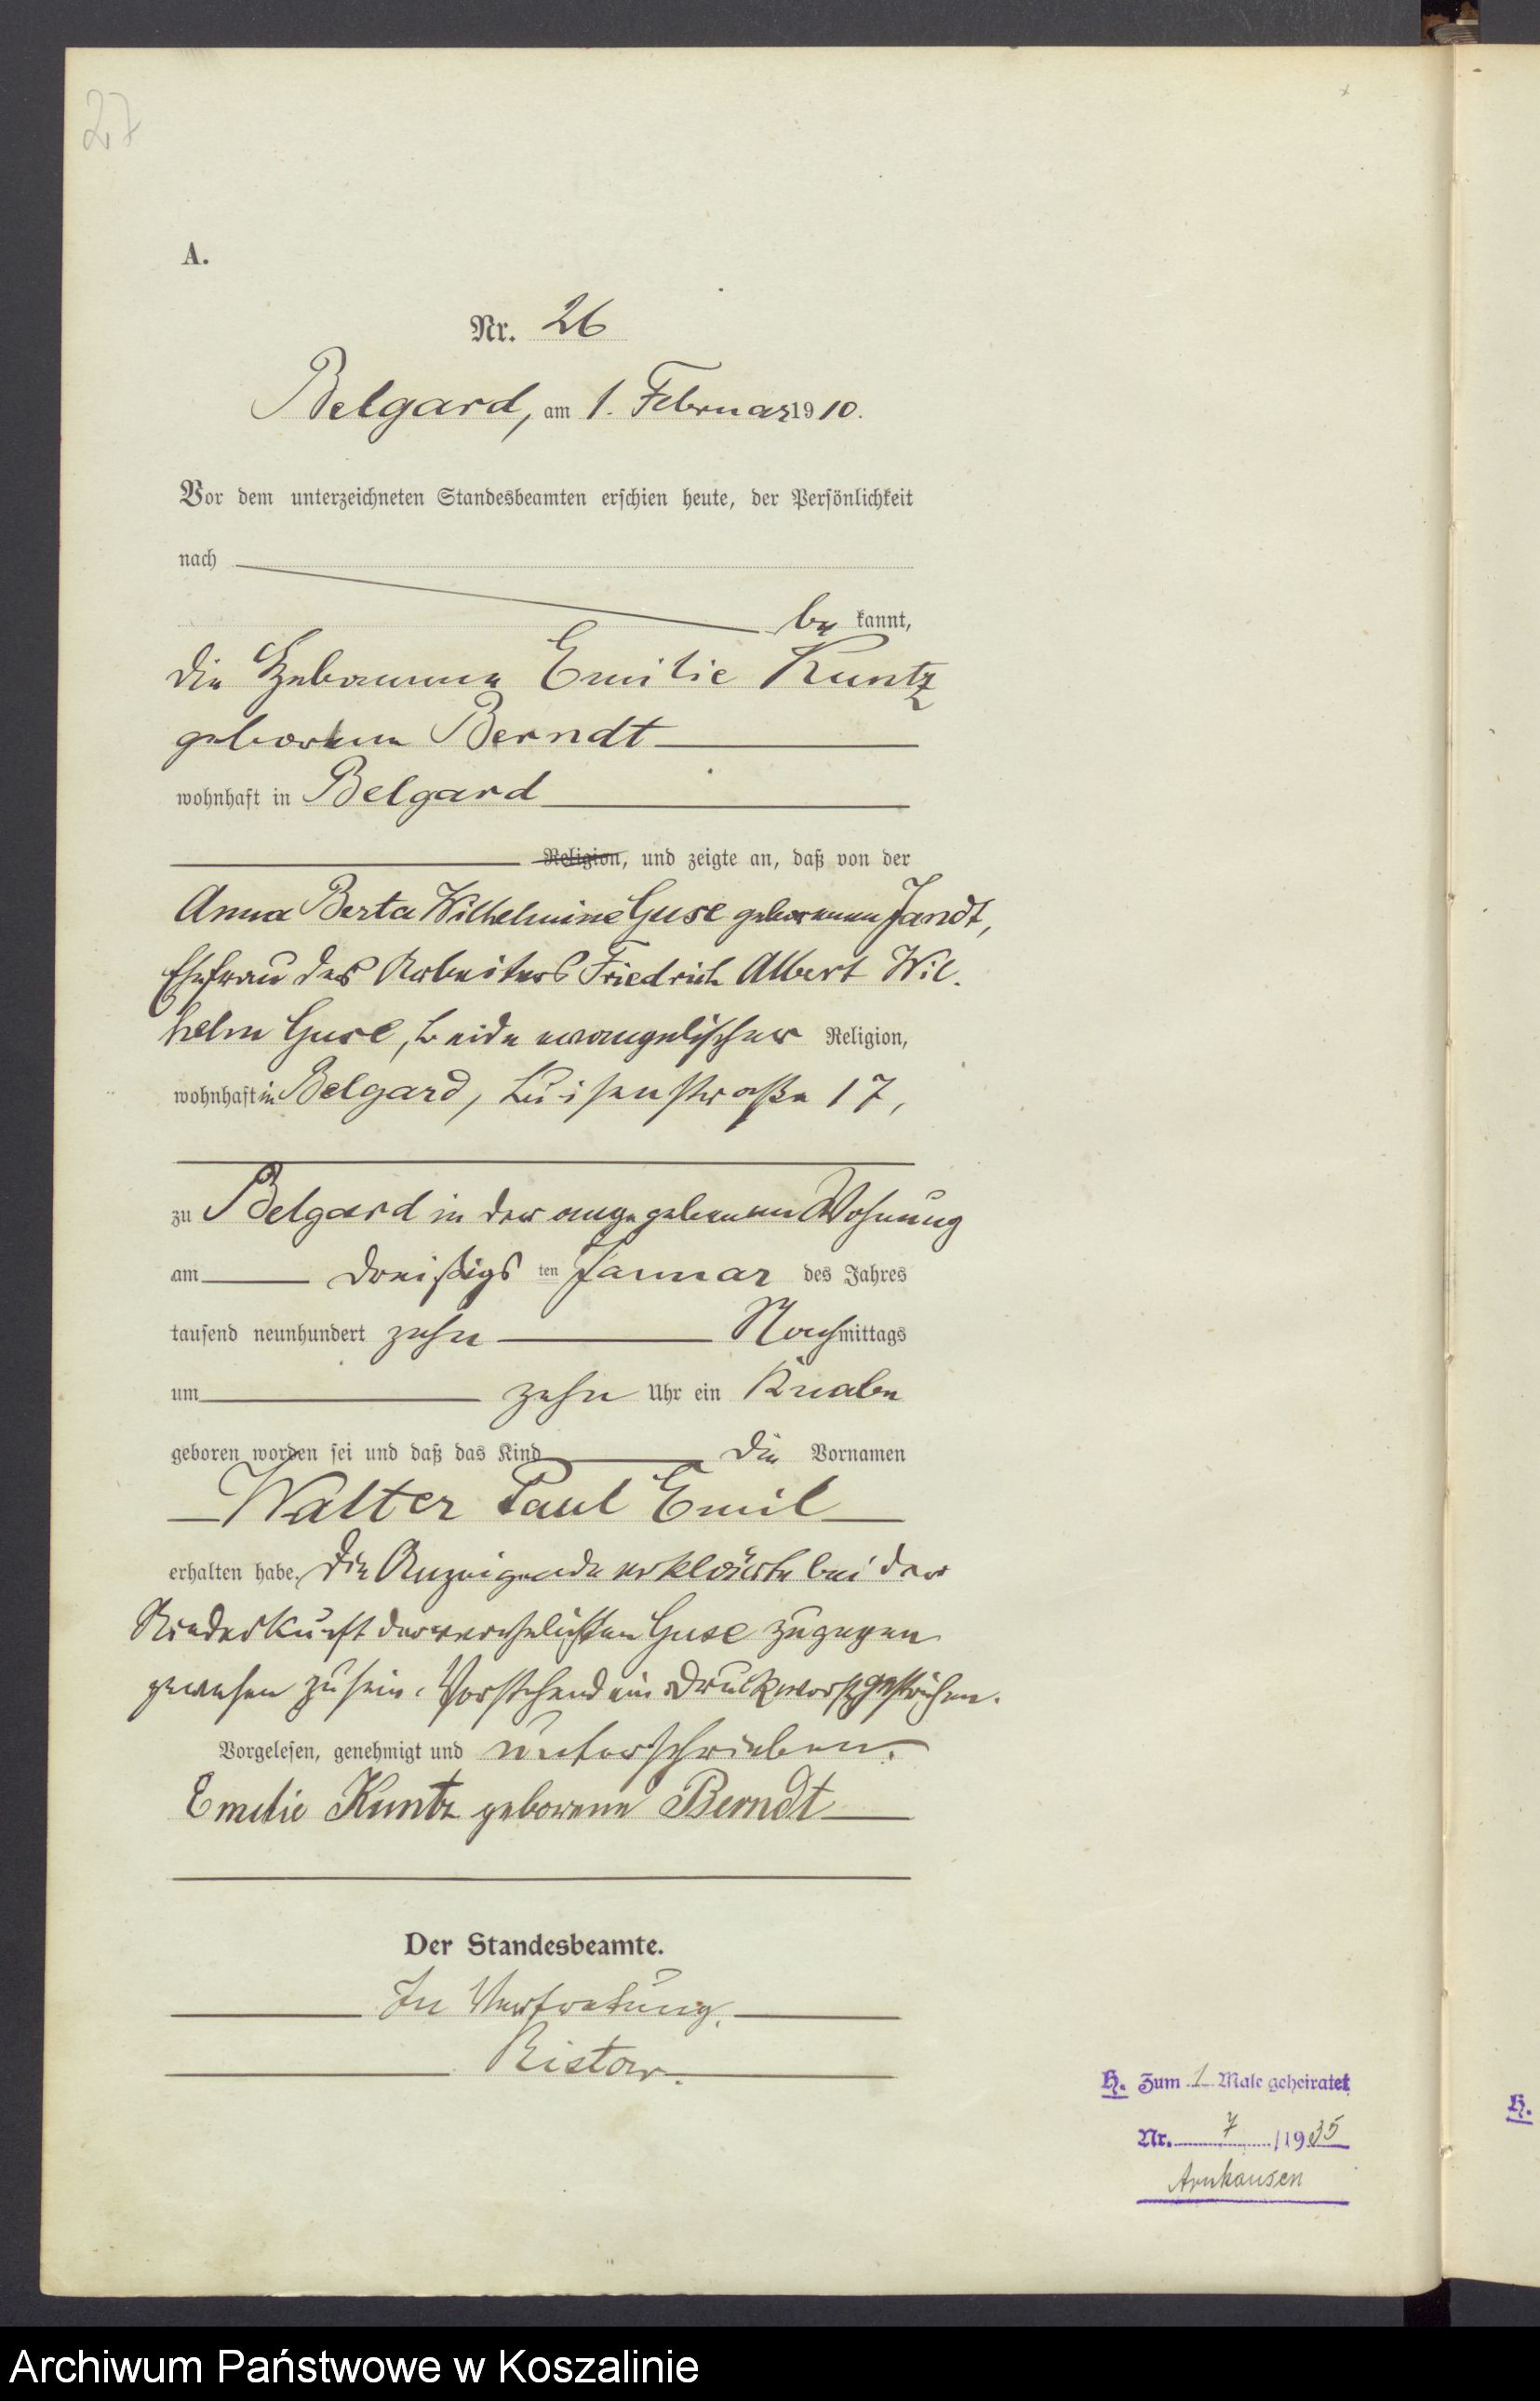 27
A.
Nr. 26
Belgard, am 1. Februar 1910.
Vor dem unterzeichneten Standesbeamten erschien heute, der Persönlichkeit
nach
be kannt,
die Hebamme Emilie Kuntz
geborene Berndt
wohnhaft in Belgard
Religion, und zeigte an, daß von der
Anna Berta Wilhelmine Guse geborenen Jandt,
Ehefrau des Arbeiters Friedrich Albert Wil-
helm Guse, beide evangelischer Religion,
wohnhaft in Belgard, Luisenstraße 17,
zu Belgard in der angegebenen Wohnung
am dreißigs ten Januar des Jahres
tausend neunhundert zehn Nachmittags
um zehn Uhr ein Knabe
geboren worden sei und daß das Kind die Vornamen
Walter Paul Emil
erhalten habe. Die Anzeigende erklärte bei der
Niederkunft der verehelichten Guse zugegen
gewesen zu sein. Vorstehend ein Druckwort gestrichen.
Vorgelesen, genehmigt und unterschrieben.
Emilie Kuntz geborene Berndt
Der Standesbeamte.
In Vertretung.
Ristow.
H. Zum 1 Male geheiratet
Nr. 7 /1935
Arnhausen
H.
Archiwum Państwowe w Koszalinie